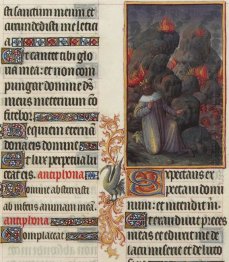 sti sanctum meum et
circundedisti me leticia
Ut cantet tibi glo
ria mea: et non com
pungar domine d's
meus in eternum co
fitebor
Requiem eternā
dona eis domine
Et lux perpetua lu
ceat eis. antiphona
Domine abstraxisti
ab
antiphona
Complaceat
Expectans ex
pectavi domi
num: et intendit m
Et exaudivit preces
meas et eduxit me de
lacu miserie et de luto